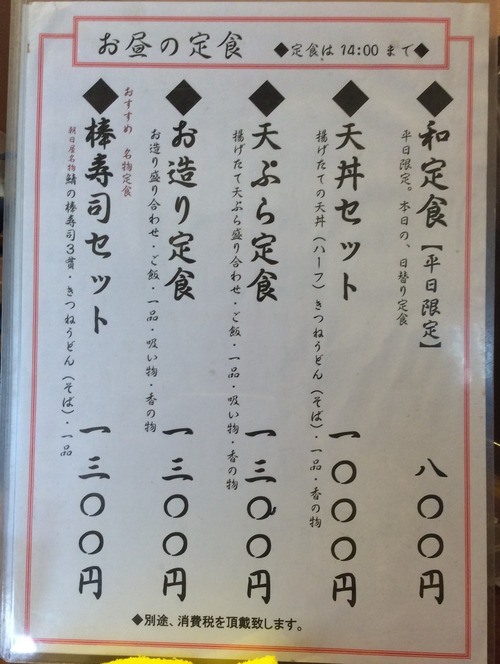 お昼の定食 ◆定食は 14:00 まで◆
◆和定食【平日限定】 八〇〇円
平日限定。本日の、日替り定食
◆天丼セット 一〇〇〇円
揚げたての天丼(ハーフ)きつねうどん(そば)・一品・香の物
◆天ぷら定食 一三〇〇円
揚げたて天ぷら盛り合わせ・ご飯・一品・吸い物・香の物
◆お造り定食 一三〇〇円
お造り盛り合わせ・ご飯・一品・吸い物・香の物
おすすめ 名物定食
◆棒寿司セット 一三〇〇円
朝日屋名物鯖の棒寿司3貫・きつねうどん(そば)・一品
◆別途、消費税を頂戴致します。